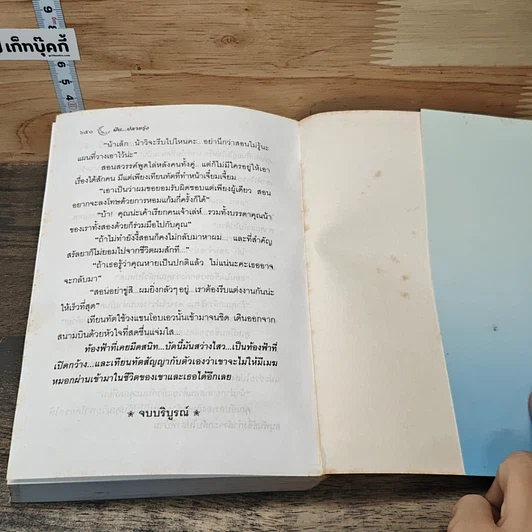 เก็ทบุ๊คกี้
"น้าเล็ก... น้าวิจะรีบไปไหนคะ...อย่านึกว่าสอนไม่รู้นะ
แผนที่วางเอาไว้น่ะ"
สอนสวรรค์พูดไล่หลังคนทั้งคู่... แต่ก็ไม่มีใครอยู่ให้เอา
เรื่องได้สักคน มีแต่เพียงเทียนทัดที่ทำหน้าเจี๋ยมเจี้ยม
"เอาเป็นว่าผมขอยอมรับผิดชอบแต่เพียงผู้เดียว สอน
อยากจะลงโทษด้วยการหอมแก้มกี่ครั้งก็ได้"
"บ้า! คุณน่ะเค้าเรียกคนเจ้าเล่ห์...รวมทั้งบรรดาคุณน้า
ของเราทั้งสองด้วยก็ร่วมมือไปกับคุณ"
"ถ้าไม่ทำยังงี้สอนก็คงไม่กลับมาหาผม... และที่สำคัญ
สรัสยาก็ไม่ยอมไปจากชีวิตผมสักที..."
"ถ้าเธอรู้ว่าคุณหายเป็นปกติแล้ว ไม่แน่นะคะเธออาจ
จะกลับมา"
"สอนอย่าขู่สิ...ผมยิ่งกลัวๆ อยู่...เราต้องรีบแต่งงานกันน่ะ
ให้เร็วที่สุด"
เทียนทัดใช้วงแขนโอบเอวนั้นเข้ามาจนชิด เดินออกจาก
สนามบินด้วยหัวใจที่สดชื่นแจ่มใส...
ท้องฟ้าที่เคยมืดสนิท...บัดนี้มันสว่างไสว...เป็นท้องฟ้าที่
เปิดกว้าง...และเทียนทัดสัญญากับตัวเองว่าเขาจะไม่ให้มีเมฆ
หมอกผ่านเข้ามาในชีวิตของเขาและเธอได้อีกเลย
★ จบบริบูรณ์ ★